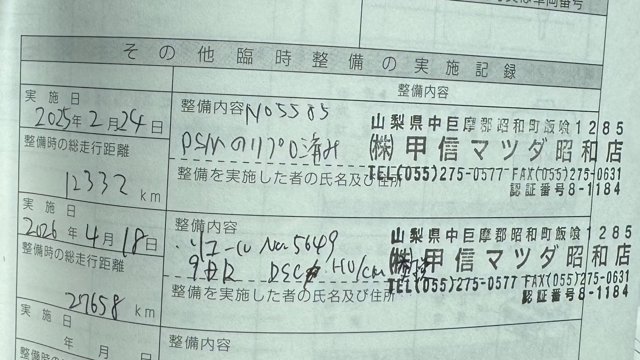 その他臨時整備の実施記録
実施日
整備内容
2025年2月24日
整備内容 No5585
PSMのリプロ済み
整備時の総走行距離
12332 km
整備を実施した者の氏名及び住所
山梨県中巨摩郡昭和町飯喰1285
㈱甲信マツダ昭和店
TEL(055)275-0577 FAX(055)275-0631
認証番号8-1184
実施日
2026年4月18日
整備内容
リコール No.5649
DSC HU/CM
整備時の総走行距離
27658 km
整備を実施した者の氏名及び住所
山梨県中巨摩郡昭和町飯喰1285
㈱甲信マツダ昭和店
TEL(055)275-0577 FAX(055)275-0631
認証番号8-1184
実施日
年 月 日
整備内容